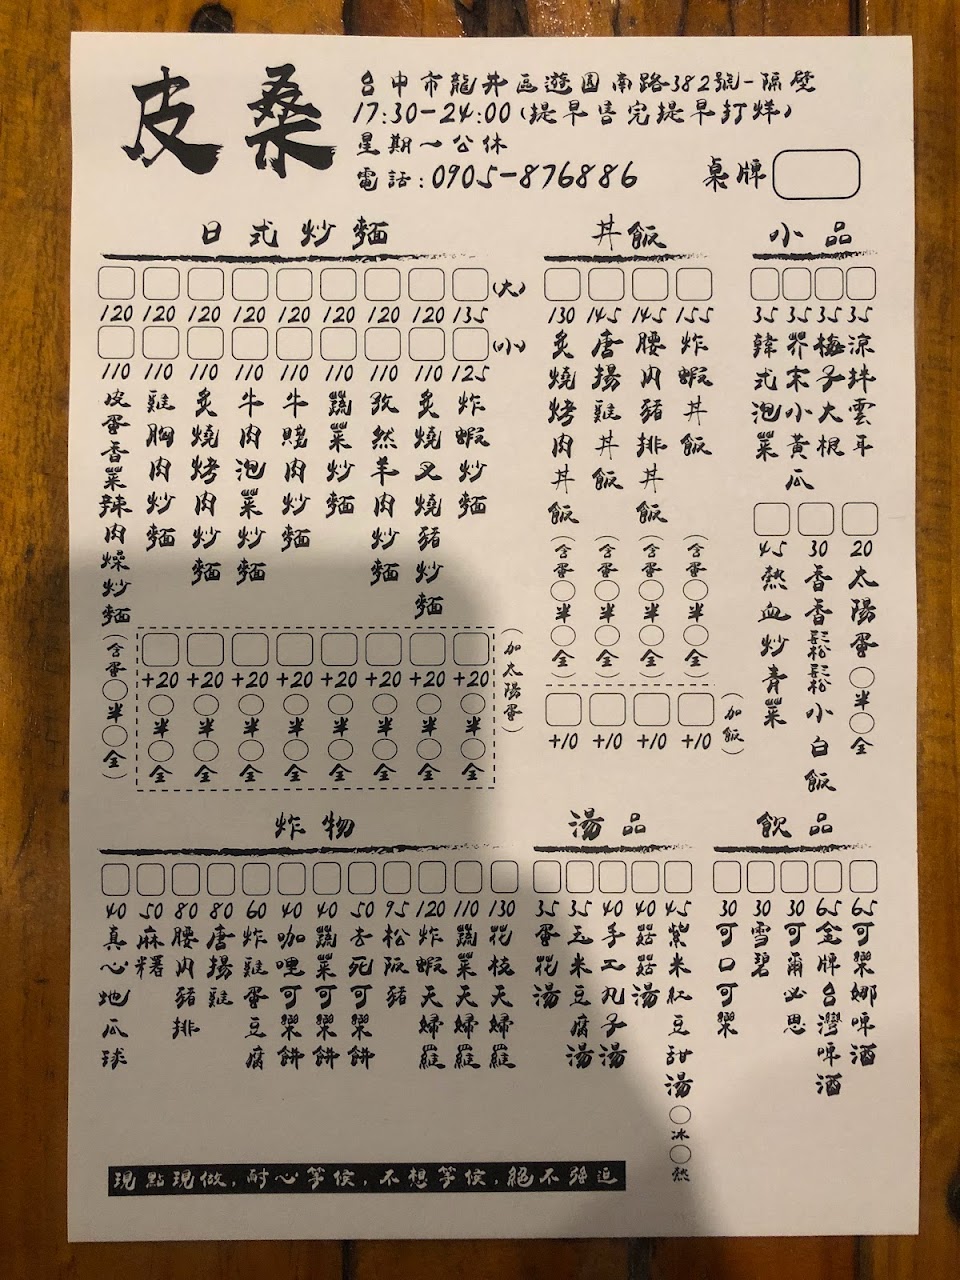 皮桑
台中市龍井區遊園南路382號-隔壁
17:30-24:00(提早售完提早打烊)
星期一公休
電話:0905-876886
桌牌
日式炒麵
(大)
120 120 120 120 120 120 120 120 135
(小)
110 110 110 110 110 110 110 110 125
皮蛋香菜辣肉燥炒麵(含蛋○半○全)
雞胸肉炒麵
炙燒烤肉炒麵
牛肉泡菜炒麵
牛賤肉炒麵
蔬菜炒麵
孜然羊肉炒麵
炙燒叉燒豬炒麵
炸蝦炒麵
(加太陽蛋)
+20 +20 +20 +20 +20 +20 +20 +20
○半○全 ○半○全 ○半○全 ○半○全 ○半○全 ○半○全 ○半○全 ○半○全
丼飯
130 炙燒烤肉丼飯(含蛋○半○全)
145 唐揚雞丼飯(含蛋○半○全)
145 腰內豬排丼飯(含蛋○半○全)
155 炸蝦丼飯(含蛋○半○全)
+10 +10 +10 +10
(加飯)
小品
35 韓式泡菜
35 芥末小黃瓜
35 梅子大根
35 涼拌雲耳
45 熱血炒青菜
30 香香鬆鬆小白飯
20 太陽蛋○半○全
炸物
40 真心地瓜球
50 麻糬
80 腰內豬排
80 唐揚雞
60 炸雞蛋豆腐
40 咖哩可樂餅
40 蔬菜可樂餅
50 去死可樂餅
95 松阪豬
120 炸蝦天婦羅
110 蔬菜天婦羅
130 花枝天婦羅
湯品
35 蛋花湯
35 玉米豆腐湯
40 手工丸子湯
40 菇菇湯
45 紫米紅豆甜湯○冰○熱
飲品
30 可口可樂
30 雪碧
30 可爾必思
65 金牌台灣啤酒
65 可樂娜啤酒
現點現做,耐心等候,不想等候,絕不強迫